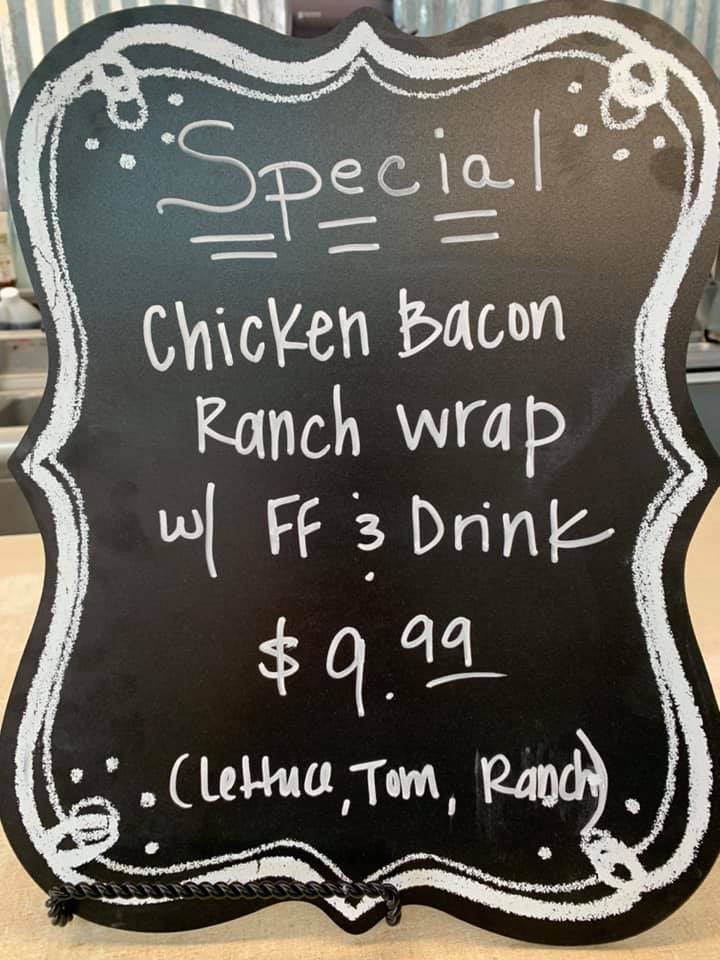 Special
Chicken Bacon
Ranch wrap
w/ FF & Drink
$9.99
(Lettuce, Tom, Ranch)